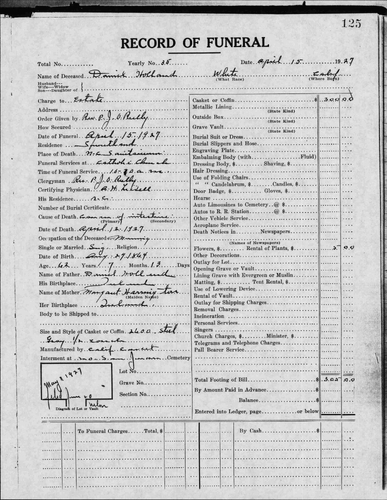 125
RECORD OF FUNERAL
Total No. Yearly No. 35 Date April 15 1927
Name of Deceased Daniel Holland White
(What Race)
Husband—
Wife—Widow
Son—Daughter of
Charge to Estate
Address
Order Given by Rev. P. J. O'Reilly
How Secured
Date of Funeral April, 15, 1927
Residence
Place of Death
Funeral Services at Catholic Church
Time of Service 10:30 a. m.
Clergyman Rev. P. J. O'Reilly
Certifying Physician
His Residence
Number of Burial Certificate
Cause of Death Cancer of intestine
(Primary) (Secondary)
Date of Death April 12, 1927
Occupation of the Deceased Mining
Single or Married Sing Religion
Date of Birth Aug 27, 1864
Age 62 Years 7 Months 13 Days
Name of Father Daniel Holland
His Birthplace Ireland
Name of Mother Margaret
(Maiden Name)
Her Birthplace Ireland
Body to be Shipped to
Size and Style of Casket or Coffin 2600 Steel
Gray 1/2 couch
Manufactured by Calif Casket
Interment at Cemetery
Lot No.
Grave No.
Section No.
Diagram of Lot or Vault
Casket or Coffin $ 300 00
Metallic Lining
(State Kind)
Outside Box
(State Kind)
Grave Vault
(State Kind)
Burial Suit or Dress
Burial Slippers and Hose
Engraving Plate
Embalming Body (with Fluid)
Dressing Body, $ Shaving, $
Hair Dressing
Use of Folding Chairs
" " Candelabrum, $ Candles, $
Door Badge, $ Gloves, $
Auto Limousines to Cemetery @ $
Autos to R. R. Station @ $
Other Vehicle Service
Aeroplane Service
Death Notices in Newspapers
(Names of Newspapers)
Flowers, $ Rental of Plants, $ 5 00
Other Decorations
Outlay for Lot
Opening Grave or Vault
Lining Grave with Evergreen or Muslin
Matting, $ Tent Rental, $
Use of Lowering Device
Rental of Vault
Outlay for Shipping Charges
Removal Charges
Incineration
Personal Services
Singers
Church Charges, $ Minister, $
Telegrams and Telephone Charges
Pall Bearer Service
Total Footing of Bill $ 305 00
By Amount Paid in Advance $
Balance $
Entered into Ledger, page or below.
To Funeral Charges Total $ By Cash $